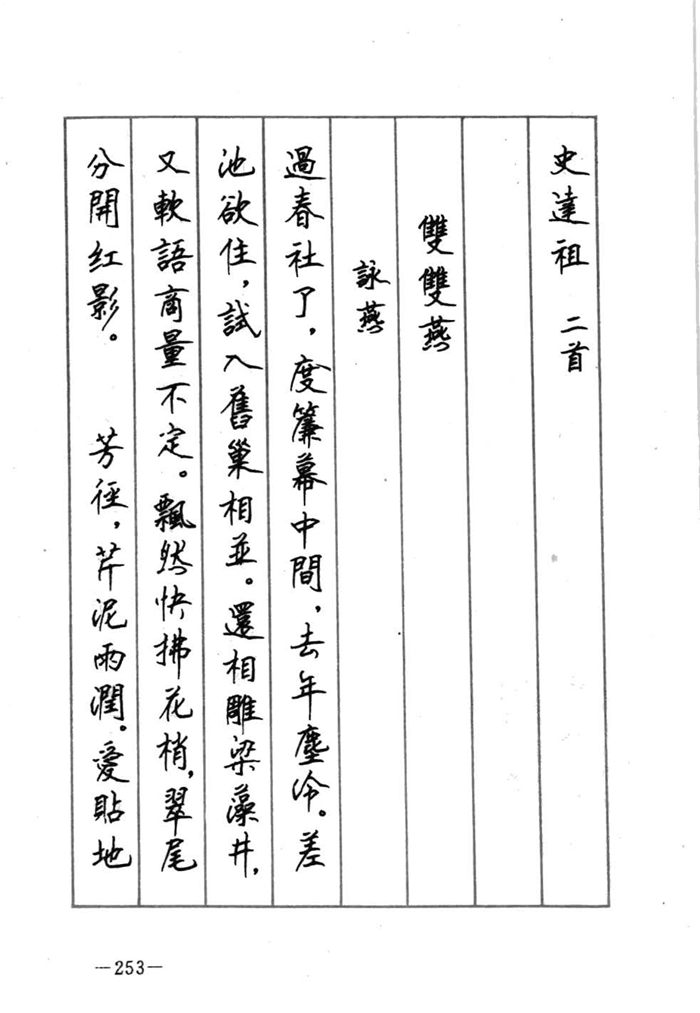 史達祖 二首
雙雙燕
詠燕
過春社了，度簾幕中間，去年塵冷。差
池欲住，試入舊巢相並。還相雕梁藻井，
又軟語商量不定。飄然快拂花梢，翠尾
分開红影。 芳徑，芹泥雨潤。愛貼地
—253—